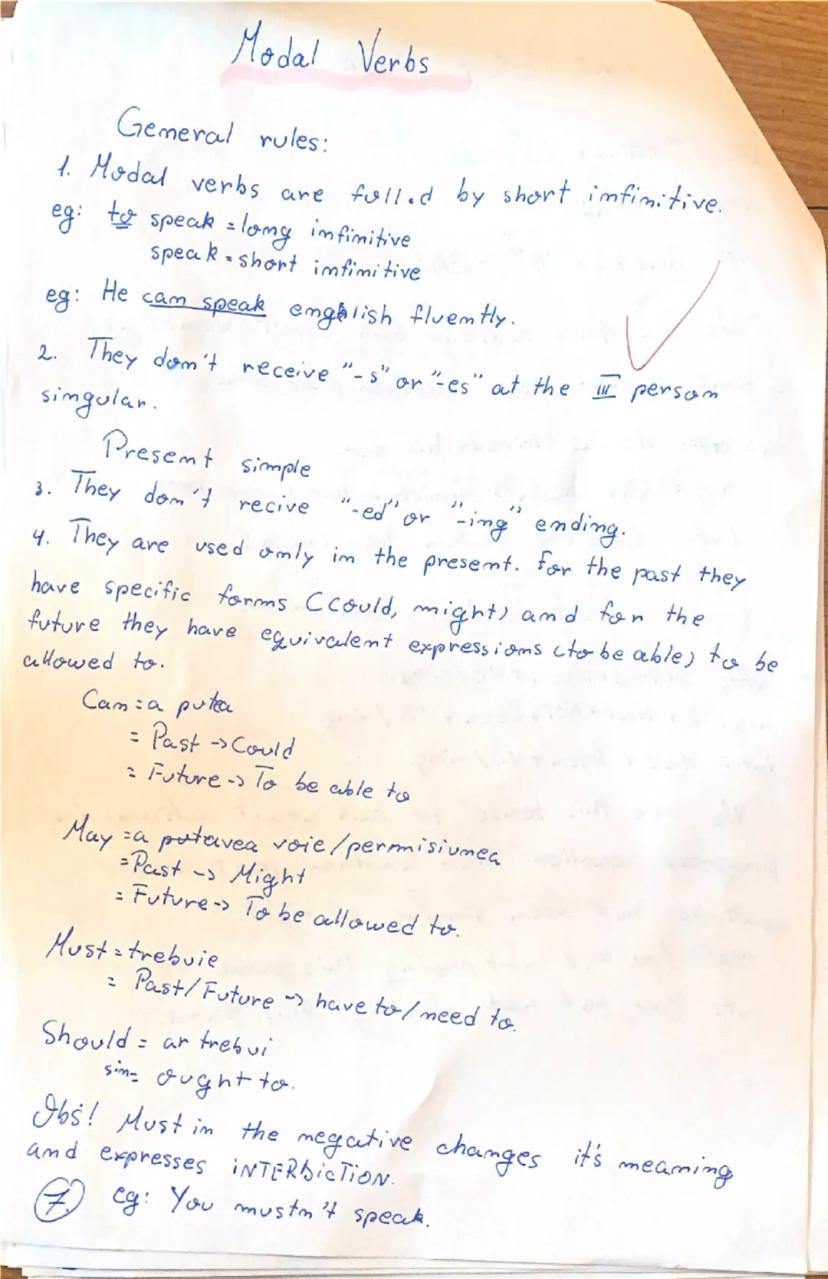 Modal Verbs
General rules:
1. Modal verbs are foll.d by short infinitive.
eg: to speak = long infinitive
speak = short infinitive
eg: He can speak english fluently.
2. They don't receive "-s" or "-es" at the III person
singular.
Present simple
3. They don't recive "-ed" or "-ing" ending.
4. They are used only in the present. For the past they
have specific forms (could, might) and for the
future they have equivalent expressions (to be able) to be
allowed to.
Can = a putea
= Past -> Could
= Future -> To be able to
May = a putavea voie/permisiunea
= Past -> Might
= Future -> To be allowed to.
Must = trebuie
= Past/Future -> have to/need to.
Should = ar trebui
sin= ought to.
Obs! Must in the negative changes it's meaning
and expresses iNTERDiCTiON.
7. eg: You mustn't speak.